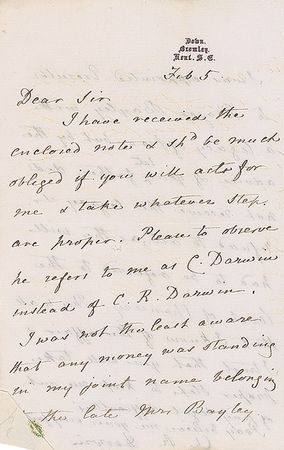 Down.
Bromley.
Kent. S.E.
Feb 5
Dear Sir
I have received the
enclosed note & shd be much
obliged if you will act for
me & take whatever steps
are proper. Please to observe
he refers to me as C. Darwin
instead of C. R. Darwin.
I was not the least aware
that any money was standing
in my joint name belonging
to the late Mrs Bayley